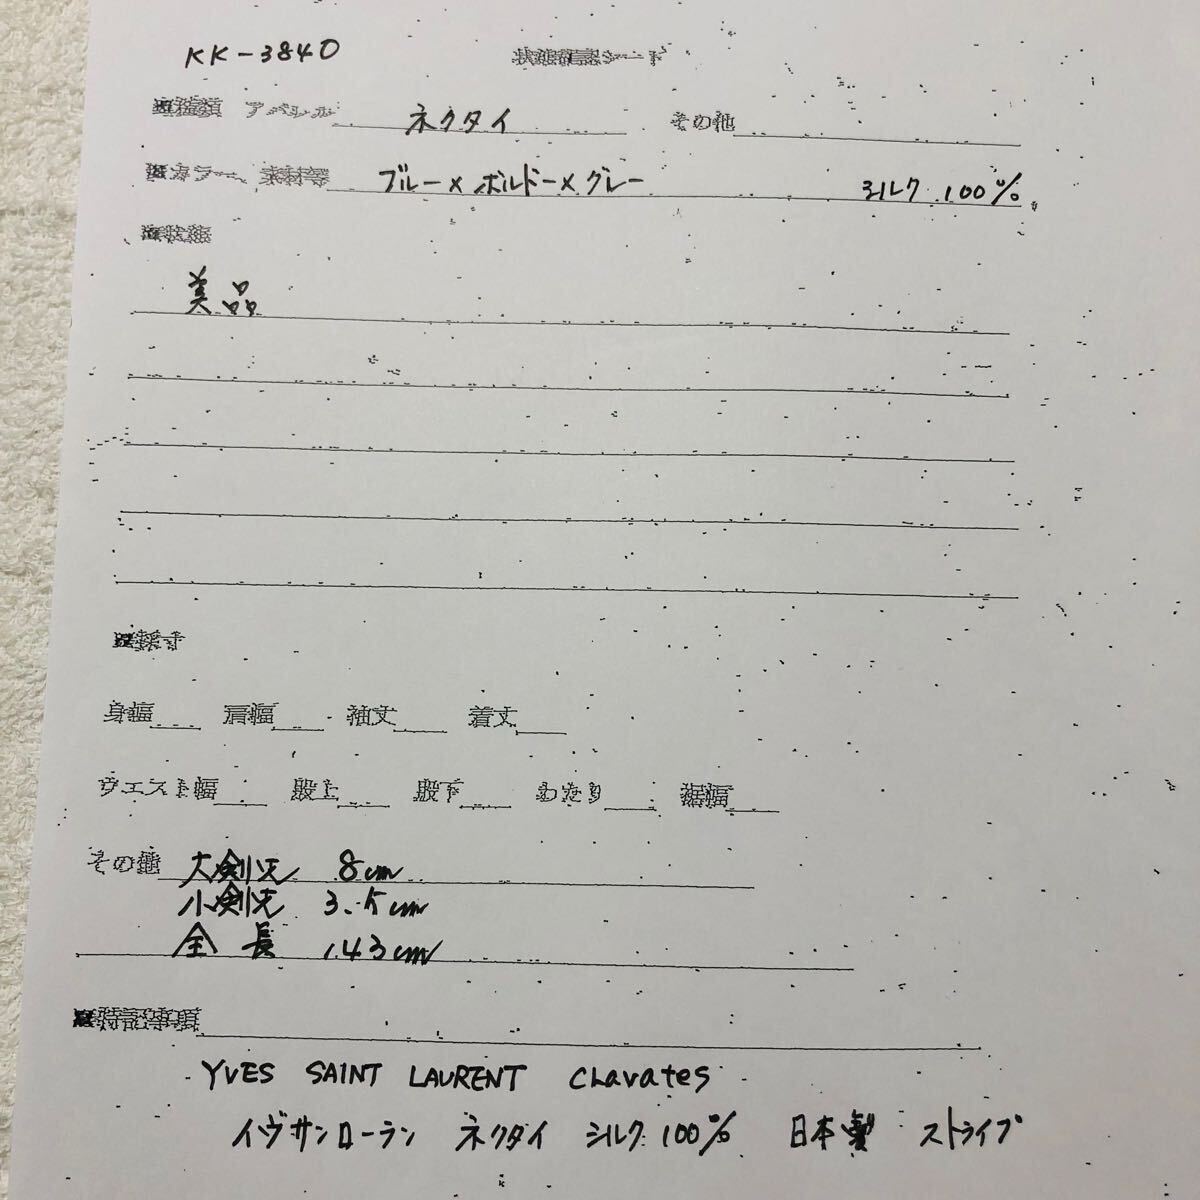 KK-3840 状態確認シート
■種類 アパレル ネクタイ その他
■カラー、素材等 ブルー×ボルドー×グレー シルク 100%
■状態
美品
■採寸
身幅 肩幅 袖丈 着丈
ウエスト幅 股上 股下 わたり 裾幅
その他 大剣先 8cm
小剣先 3.5cm
全長 143cm
■特記事項
YVES SAINT LAURENT Clavates
イヴサンローラン ネクタイ シルク 100% 日本製 ストライプ